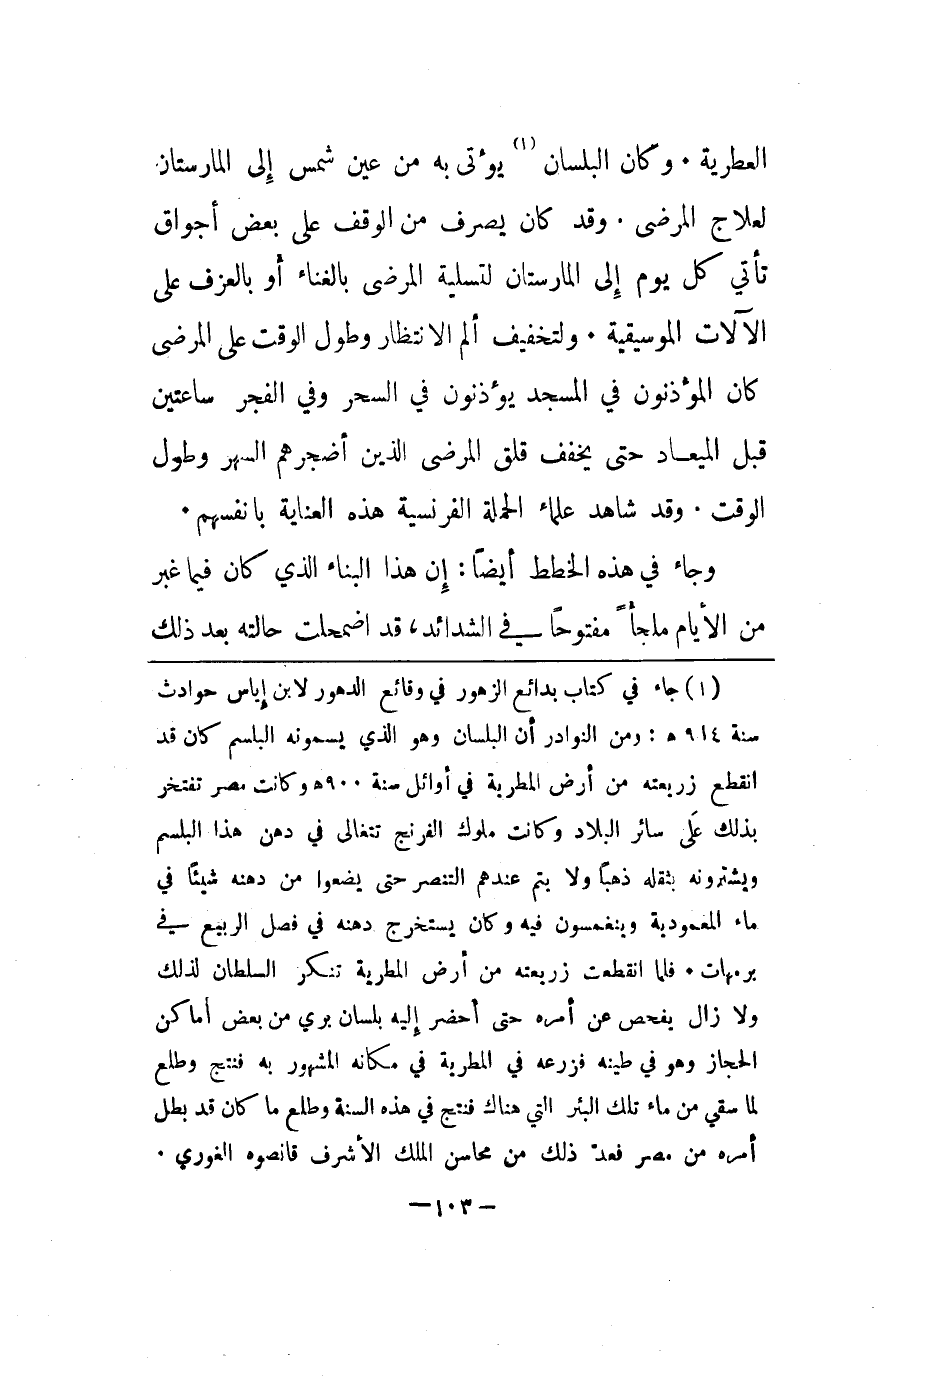 العطرية . وكان البلسان (١) يؤتى به من عين شمس إلى المارستان
لعلاج المرضى . وقد كان يصرف من الوقف على بعض أجواق
تأتي كل يوم إلى المارستان لتسلية المرضى بالغناء أو بالعزف على
الآلات الموسيقية . ولتخفيف ألم الانتظار وطول الوقت على المرضى
كان المؤذنون في المسجد يؤذنون في السحر وفي الفجر ساعتين
قبل الميعاد حتى يخفف قلق المرضى الذين أضجرهم السهر وطول
الوقت . وقد شاهد علماء الحملة الفرنسية هذه العناية بانفسهم .
وجاء في هذه الخطط أيضاً : إن هذا البناء الذي كان فيما غبر
من الأيام ملجأً مفتوحاً في الشدائد، قد اضمحلت حالته بعد ذلك
(١) جاء في كتاب بدائع الزهور في وقائع الدهور لابن إياس حوادث
سنة ٩١٤ ه : ومن النوادر أن البلسان وهو الذي يسمونه البلسم كان قد
انقطع زريعته من أرض المطرية في أوائل سنة ٩٠٠ه وكانت مصر تفتخر
بذلك عَلَى سائر البلاد وكانت ملوك الفرنج تتغالى في دهن هذا البلسم
ويشترونه بثقله ذهباً ولا يتم عندهم التنصر حتى يضعوا من دهنه شيئاً في
ماء المعمودية وينغمسون فيه وكان يستخرج دهنه في فصل الربيع في
برمهات . فلما انقطعت زريعته من أرض المطرية تنكر السلطان لذلك
ولا زال يفحص عن أمره حتى أحضر إليه بلسان بري من بعض أماكن
الحجاز وهو في طينه فزرعه في المطرية في مكانه المشهور به فنتج وطلع
لما سقي من ماء تلك البئر التي هناك فنتج في هذه السنة وطلع ما كان قد بطل
أمره من مصر فعدّ ذلك من محاسن الملك الأشرف قانصوه الغوري .
— ١٠٣ —